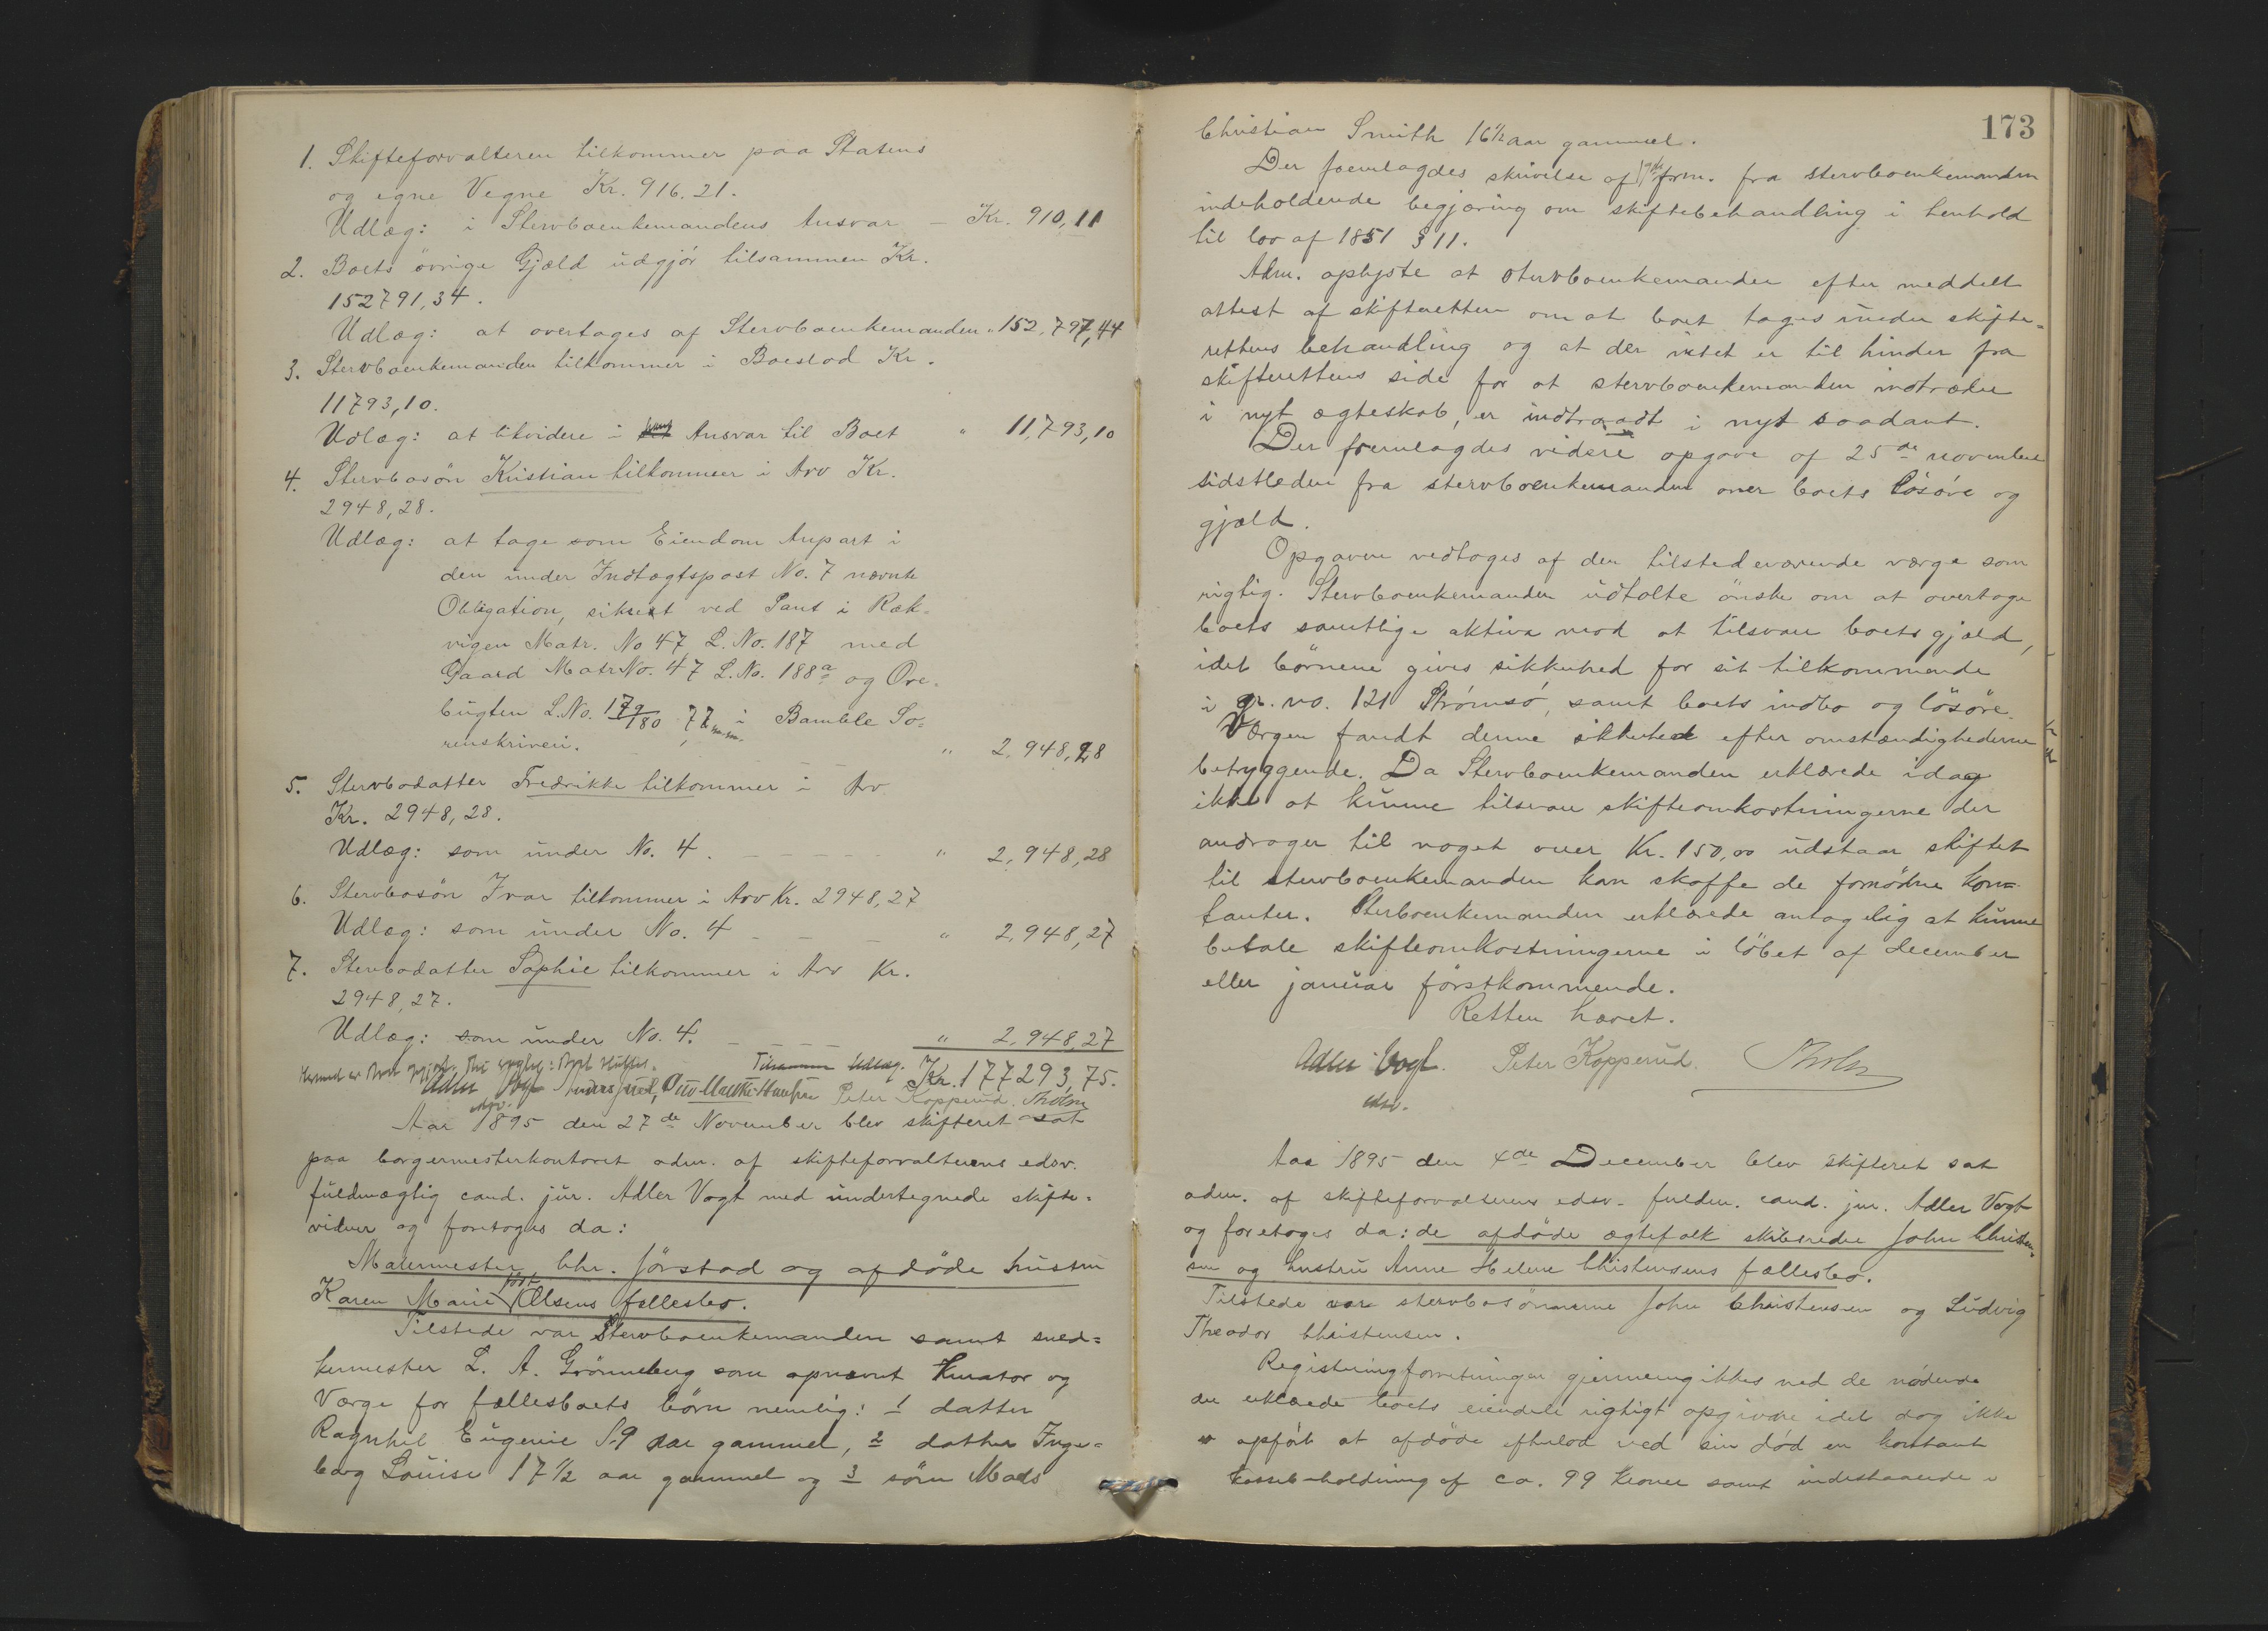 1. Skifteforvalteren tilkommer paa Statens
og egne Vegne Kr. 916.21.
Udlæg: i Stervboenkemandens Ansvar — Kr. 910,11
2. Boets övrige Gjæld udgjör tilsammen Kr.
152791,34.
Udlæg: at overtages af Stervboenkemanden " 152,797,44
3. Stervboenkemanden tilkommer i Boeslod Kr.
11793,10.
Udlæg: at likvidere i Ansvar til Boet " 11,793,10
4. Stervbosön Kristian tilkommer i Arv Kr.
2948,28.
Udlæg: at tage som Eiendom Anpart i
den under Indtægtspost No. 7 nævnte
Obligation, sikret ved Pant i Ræk-
vigen Matr. No 47 L. No. 187 med
Gaard Matr No. 47 L. No. 188a og Ore-
bugten L. No. 179/180, 77 m.m. i Bamble So-
renskriveri. " 2,948,28
5. Stervbodatter Fredrikke tilkommer i Arv
Kr. 2948,28.
Udlæg: som under No. 4. — — — — " 2,948,28
6. Stervbosön Ivar tilkommer i Arv Kr. 2948,27
Udlæg: som under No. 4 — — — " 2,948,27
7. Stervbodatter Sophie tilkommer i Arv Kr.
2948,27.
Udlæg: som under No. 4. — — — — " 2,948,27
Tilsammen Udlæg. Kr. 177293,75.
Adler Vogt Peter Kopperud. Tholm
edsv.
Aar 1895 den 27de November blev skifteret sat
paa borgermesterkontoret adm. af skifteforvalterens edsv.
fuldmægtig cand. jur. Adler Vogt med undertegnede skifte-
vidner og foretoges da:
Malermester Chr. Jörstad og afdöde hustru
Karen Marie født Olsens fællesbo.
Tilstede var Stervboenkemanden samt sned=
kermester L. A. Grönneberg som opnævnt Kurator og
Værge for fællesboets börn nemlig: 1 datter
Ragnhil Eugenie 19 aar gammel, 2 datter Inge-
borg Louise 17 1/2 aar gammel og 3 sönn Mads
173
Christian Smith 16 1/2 aar gammel.
Der fremlagdes skrivelse af 19de frm. fra stervboenkemanden
indeholdende begjæring om skiftebehandling i henhold
til lov af 1851 § 11.
Adm. oplyste at stervboenkemanden efter meddelt
attest af skifteretten om at boet tages under skifte=
rettens behandling og at der intet er til hinder fra
skifterettens side for at stervboenkemanden indtræder
i nyt ægteskab, er indtraadt i nyt saadant.
Der fremlagdes videre opgave af 25de november
sidstleden fra stervboenkemanden over boets lösöre og
gjæld.
Opgaven vedtoges af den tilstedeværende værge som
rigtig. Stervboenkemanden udtalte önske om at overtage
boets samtlige aktiva mod at tilsvare boets gjæld,
idet börnene gives sikkerhed for sit tilkommende
i gr. no. 121 Strömsö, samt boets indbo og lösöre.
Værgen fandt denne sikkerhed efter omstændighederne
betryggende. Da Stervboenkemanden erklærede idag
ikke at kunne tilsvare skifteomkostningerne der
andrager til noget over Kr. 150,00 udstaar skiftet
til stervboenkemanden kan skaffe de fornödne kon-
tanter. Sterboenkemanden erklærede antagelig at kunne
betale skifteomkostningerne i löbet af december
eller januar förstkommende.
Retten hævet.
Adler Vogt. Peter Kopperud. Tholm
edsv.
Aar 1895 den 4de December blev skifteret sat
adm. af skifteforvalterens edsv. fuldm. cand. jur. Adler Vogt
og foretoges da: de afdöde ægtefolk skibsreder John Christen-
sen og hustru Anne Helene Christensens fællesbo.
Tilstede var stervbosönnerne John Christensen og Ludvig
Theodor Christensen.
Registreringsforretningen gjennemgikkes med de mödende
der erklærede boets eiendele rigtigt opgivne idet dog ikke
er opfört at afdöde efterlod ved sin död en kontant
kassebeholdning af ca. 99 kroner samt indestaaende i